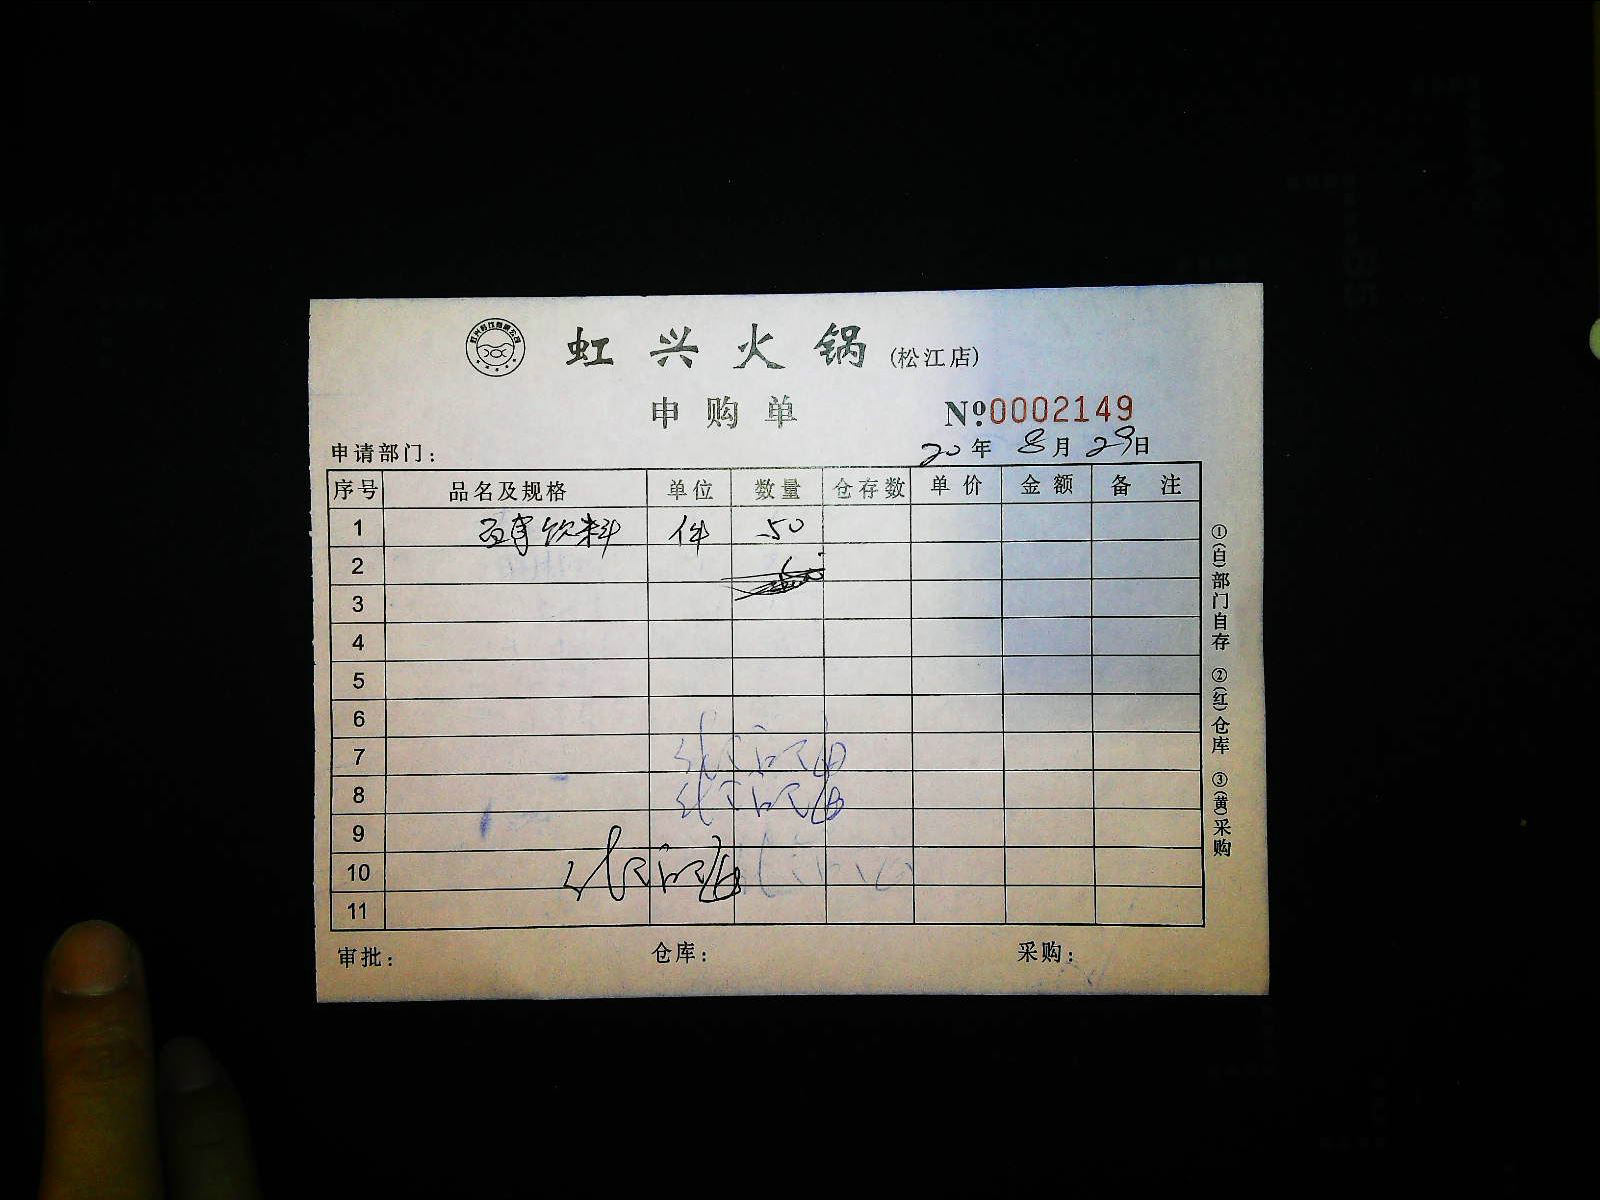 虹兴火锅(松江店)
申购单
№0002149
申请部门: 20年 8月 29日
序号 品名及规格 单位 数量 仓存数 单价 金额 备注
1 百事饮料 件 50
2
3
4
5
6
7
8
9
10
11
审批: 仓库: 采购:
①(白)部门自存 ②(红)仓库 ③(黄)采购